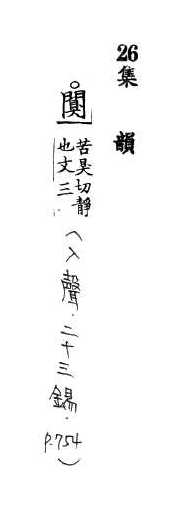 26集韻
闃苦臭切靜也文三〈入聲.二十三錫.P.754〉